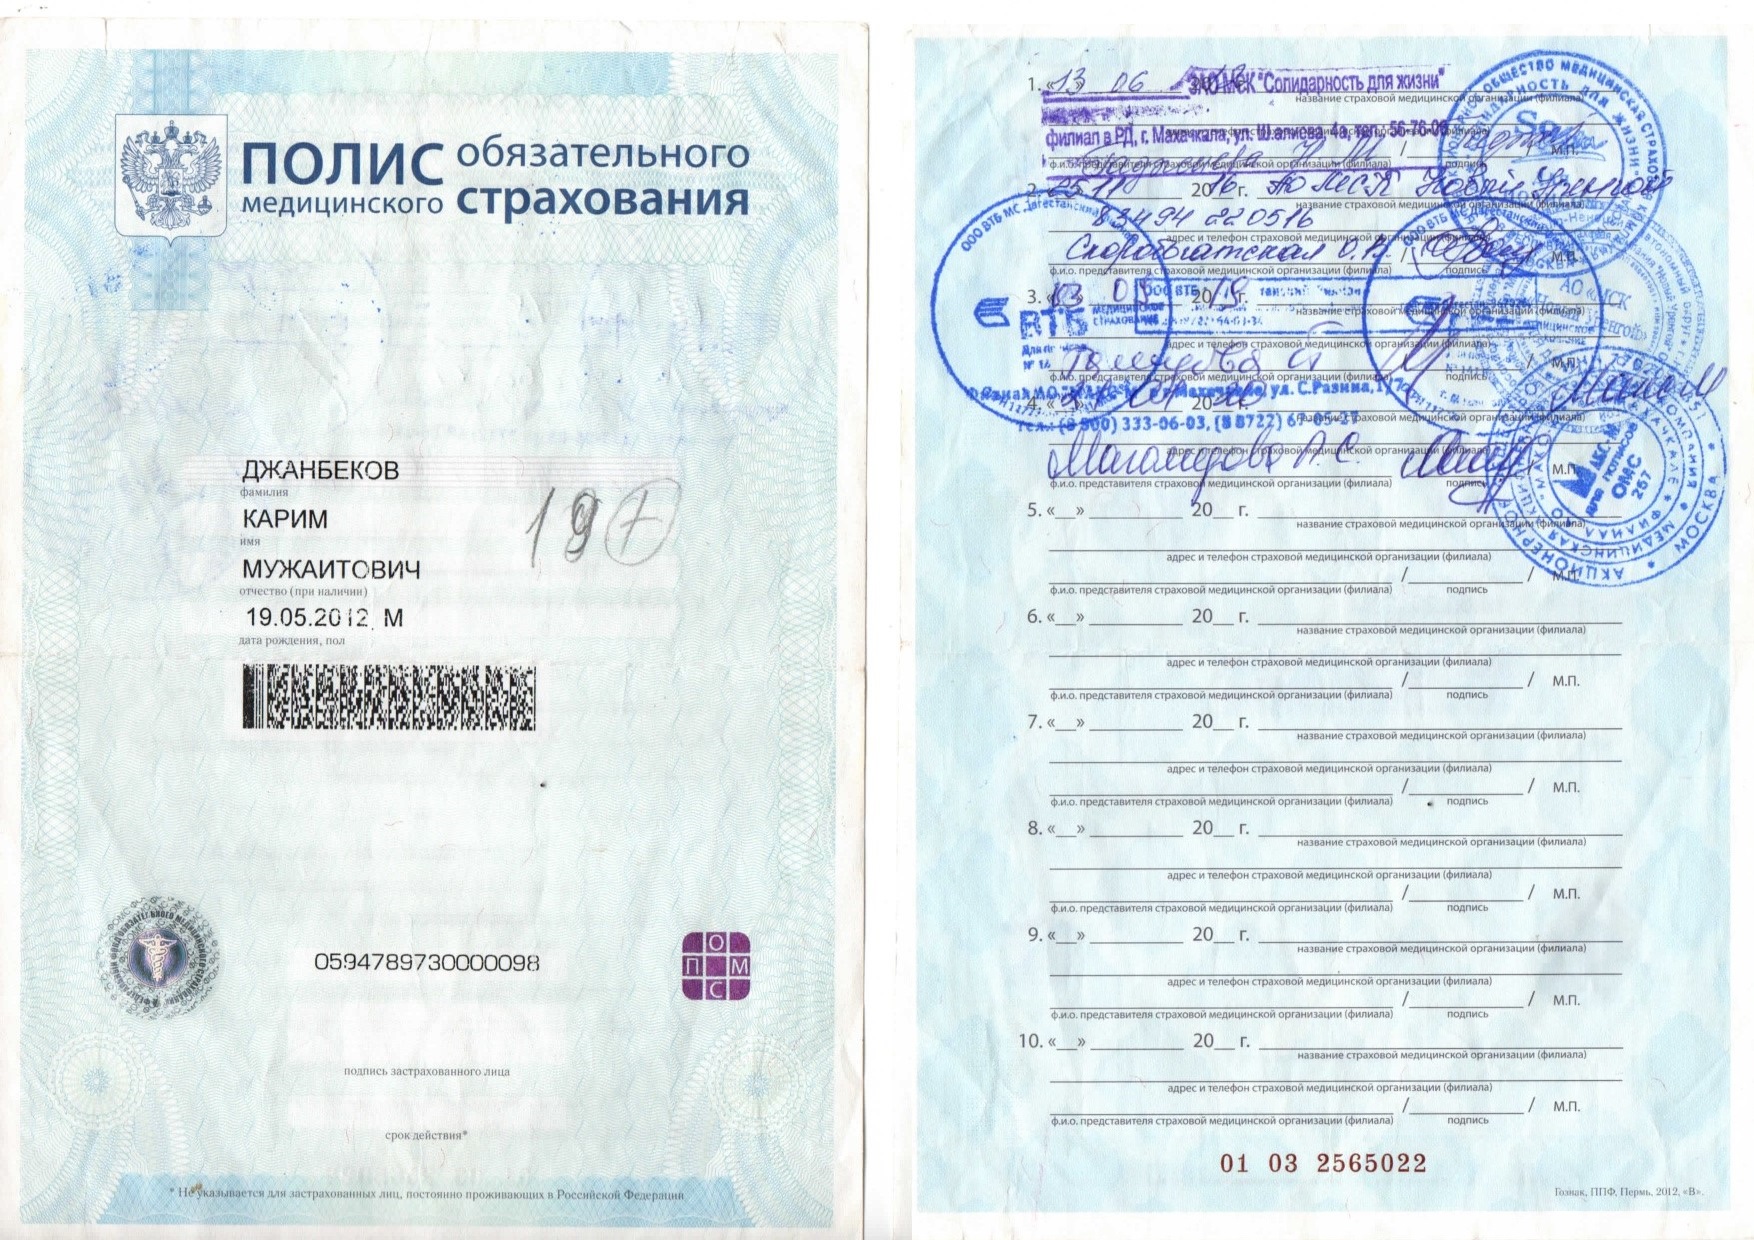 ПОЛИС обязательного
медицинского страхования
ДЖАНБЕКОВ
фамилия
КАРИМ
имя
МУЖАИТОВИЧ
отчество (при наличии)
19.05.2012, М
дата рождения, пол
19 7
0594789730000098
О
П М
С
подпись застрахованного лица
срок действия*
* Не указывается для застрахованных лиц, постоянно проживающих в Российской Федерации
1. «13» 06 ЗАО МСК "Солидарность для жизни"
название страховой медицинской организации (филиала)
филиал в РД, г. Махачкала, ул. Ш.Алиева, 4а, тел.: 56-76-08
ф.и.о. представителя страховой медицинской организации (филиала) подпись М.П.
2. «25» 11 2016 г. АО МСК Новый Уренгой
название страховой медицинской организации (филиала)
83494 220516
адрес и телефон страховой медицинской организации (филиала)
Скоробогатская / М.П.
ф.и.о. представителя страховой медицинской организации (филиала) подпись
3. 20 г. ООО ВТБ
название страховой медицинской организации (филиала)
ВТБ
МЕДИЦИНСКОЕ
СТРАХОВАНИЕ
АО «МСК
«Новый Уренгой»
адрес и телефон страховой медицинской организации (филиала)
М.П.
ф.и.о. представителя страховой медицинской организации (филиала) подпись
4. 20 г. Махачкале, ул. С. Разина,
название страховой медицинской организации (филиала)
тел.: (8 800) 333-06-03, (8 8722) 67-05-27
адрес и телефон страховой медицинской организации (филиала)
Магомедова А.С. М.П.
ф.и.о. представителя страховой медицинской организации (филиала) подпись
МАКС-М
для полисов
ОМС
257
АКЦИОНЕРНОЕ
МОСКВА
5. «__» ________ 20__ г.
название страховой медицинской организации (филиала)
адрес и телефон страховой медицинской организации (филиала)
/ / М.П.
ф.и.о. представителя страховой медицинской организации (филиала) подпись
6. «__» ________ 20__ г.
название страховой медицинской организации (филиала)
адрес и телефон страховой медицинской организации (филиала)
/ / М.П.
ф.и.о. представителя страховой медицинской организации (филиала) подпись
7. «__» ________ 20__ г.
название страховой медицинской организации (филиала)
адрес и телефон страховой медицинской организации (филиала)
/ / М.П.
ф.и.о. представителя страховой медицинской организации (филиала) подпись
8. «__» ________ 20__ г.
название страховой медицинской организации (филиала)
адрес и телефон страховой медицинской организации (филиала)
/ / М.П.
ф.и.о. представителя страховой медицинской организации (филиала) подпись
9. «__» ________ 20__ г.
название страховой медицинской организации (филиала)
адрес и телефон страховой медицинской организации (филиала)
/ / М.П.
ф.и.о. представителя страховой медицинской организации (филиала) подпись
10. «__» ________ 20__ г.
название страховой медицинской организации (филиала)
адрес и телефон страховой медицинской организации (филиала)
/ / М.П.
ф.и.о. представителя страховой медицинской организации (филиала) подпись
01 03 2565022
Гознак, ППФ, Пермь, 2012, «В».